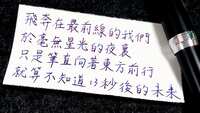 飛奔在最前線的我們
於毫無星光的夜裏
只是筆直向著東方前行
就算不知道13秒後的未來